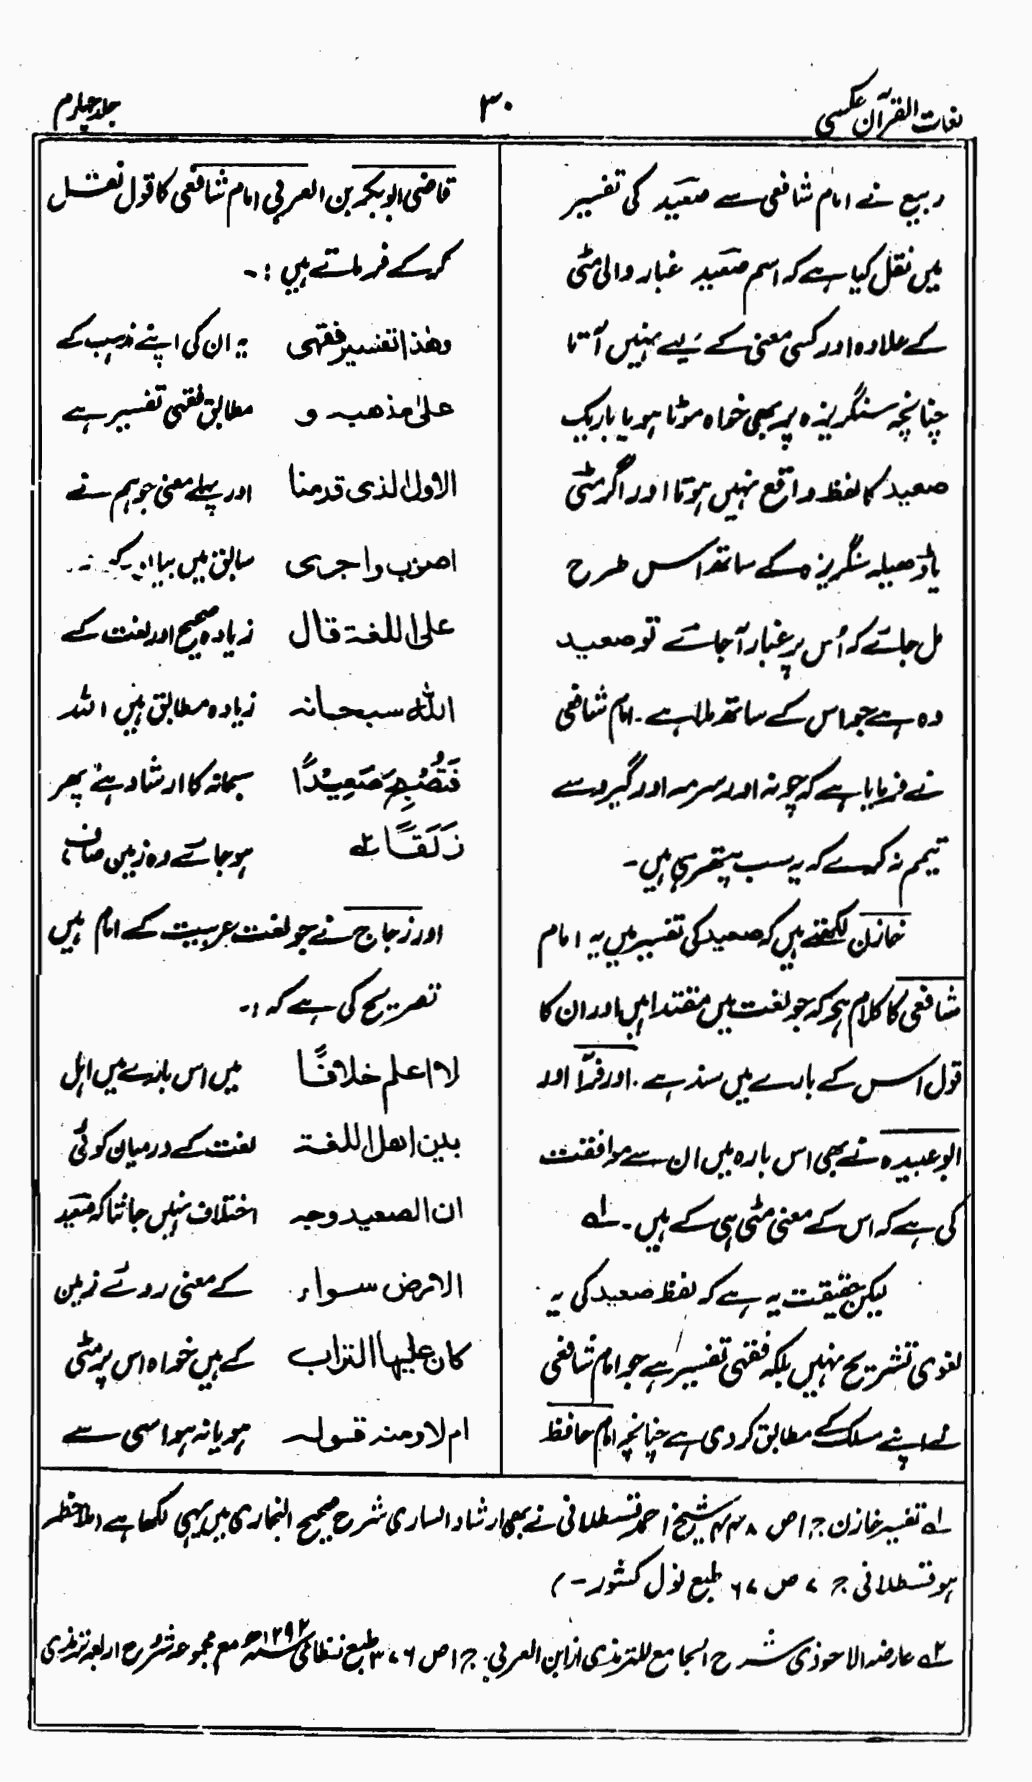 لغات القرآن عکسی
۳۰
جلد چہارم
ربیع نے امام شافعی سے صَعِید کی تفسیر
میں نقل کیا ہے کہ اسم صَعِید غبار والی مٹی
کے علاوہ اور کسی معنی کے لیے نہیں آتا
چنانچہ سنگریزہ پر بھی خواہ موٹا ہو یا باریک
صعید کا لفظ واقع نہیں ہوتا اور اگر مٹی
یا ڈھیلہ سنگریزہ کے ساتھ اس طرح
مل جائے کہ اُس پر غبار آ جائے تو صعید
وہ ہے جو اس کے ساتھ ملا ہے۔ امام شافعی
نے فرمایا ہے کہ چونہ اور سرمہ اور گیرو سے
تیمم نہ کرے کہ یہ سب پتھر ہی ہیں۔
خازن لکھتے ہیں کہ صعید کی تفسیر میں یہ امام
شافعی کا کلام ہے کہ جو لغت میں مقتدا ہیں اور ان کا
قول اس کے بارے میں سند ہے۔ اور فرّا اور
ابوعبیدہ نے بھی اس بارہ میں ان سے موافقت
کی ہے کہ اس کے معنی مٹی ہی کے ہیں۔ ۱؎
لیکن حقیقت یہ ہے کہ لفظ صعید کی یہ
لغوی تشریح نہیں بلکہ فقہی تفسیر ہے جو امام شافعی
نے اپنے مسلک کے مطابق کردی ہے چنانچہ امام حافظ
قاضی ابوبکر بن العربی امام شافعی کا قول نقل
کرکے فرماتے ہیں :۔
وھٰذا تفسیر فقھی یہ ان کی اپنے مذہب کے
علیٰ مذھبہ و مطابق فقہی تفسیر ہے
الاول الذی قدمنا اور پہلے معنی جو ہم نے
اصوب واجری سابق میں بیان کیے
علی اللغۃ قال زیادہ صحیح اور لغت کے
اللہ سبحانہ زیادہ مطابق ہیں اللہ
فَتُصْبِحَ صَعِیْدًا سبحانہ کا ارشاد ہے پھر
زَلَقًا ۲؎ ہو جائے وہ زمین صاف،
اور زجاج نے جو لغت عربیت کے امام ہیں
تصریح کی ہے کہ :۔
لا اعلم خلافًا میں اس بارے میں اہل
بین اھل اللغۃ لغت کے درمیان کوئی
ان الصعید وجہ اختلاف نہیں جانتا کہ صَعِید
الارض سواء کے معنی روئے زمین
کان علیھا التراب کے ہیں خواہ اس پر مٹی
ام لا ومنہ قولہ ہو یا نہ ہو اسی سے
۱؎ تفسیر خازن ج ۱ ص ۴۴۸ شیخ احمد قسطلانی نے بھی ارشاد الساری شرح صحیح البخاری میں یہی لکھا ہے (ملاحظہ
ہو قسطلانی ج ۷ ص ۶۷ طبع نول کشور۔)
۲؎ عارضہ الاحوذی شرح الجامع للترمذی از ابن العربی ج ۱ ص ۳۷۶ طبع نظامی ۱۲۹۲ھ مع مجموعہ شروح اربعہ ترمذی